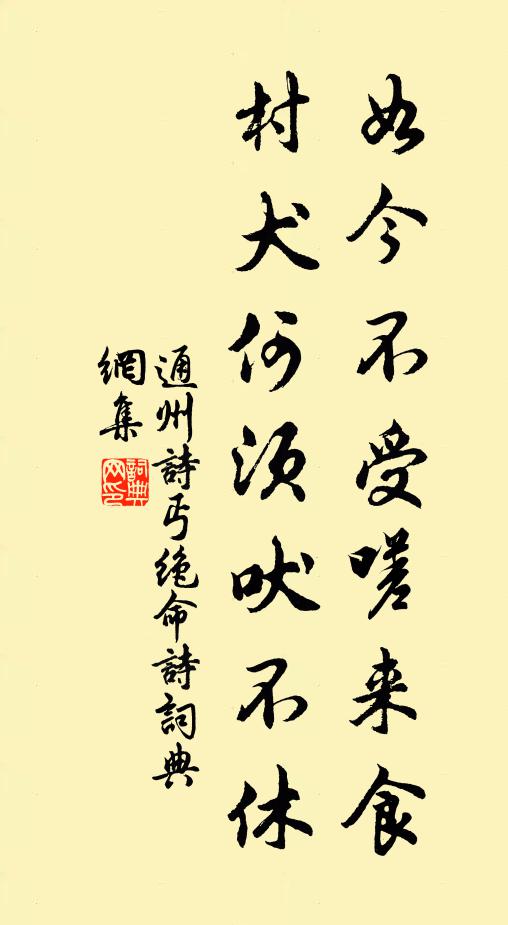 如今不受嗟来食
村犬何须吠不休
通州詩丐絶命詩詞典
網集
詞典
网印